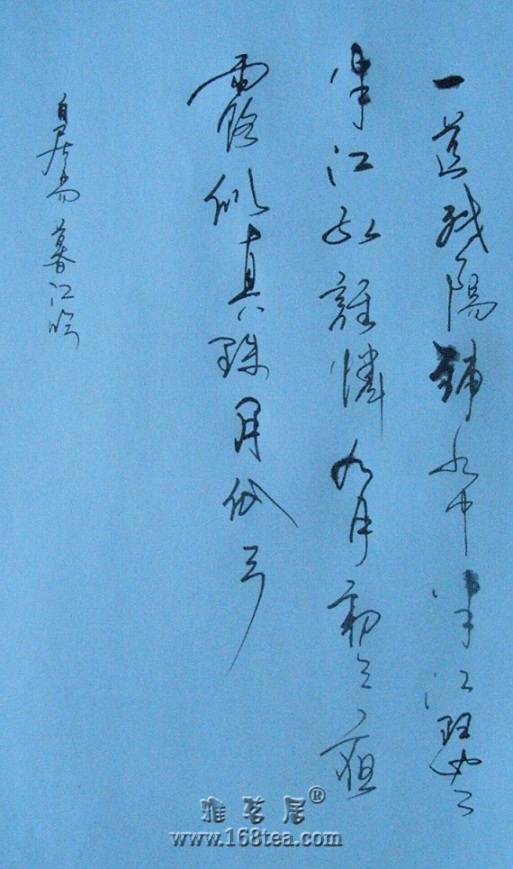 一道残陽鋪水中半江瑟〻
半江红誰憐九月初三
露似真珠月似弓
白居易 暮江吟
雅茗居®
www.168tea.com